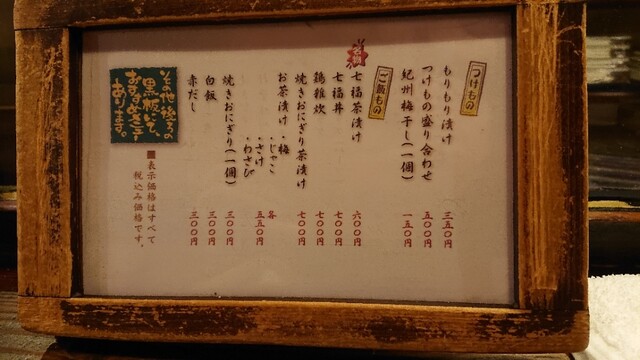 つけもの
もりもり漬け 三五〇円
つけもの盛り合わせ 五〇〇円
紀州梅干し(一個) 一五〇円
ご飯もの
名物
七福茶漬け 六〇〇円
七福丼 七〇〇円
鶏雑炊 七〇〇円
焼きおにぎり茶漬け 七〇〇円
お茶漬け・梅 各五五〇円
・じゃこ
・さけ
・わさび
焼きおにぎり(一個) 三〇〇円
白飯 三〇〇円
赤だし 三〇〇円
その他後ろの
黒板にて、
おすすめ
あります。
■表示価格はすべて
税込み価格です。